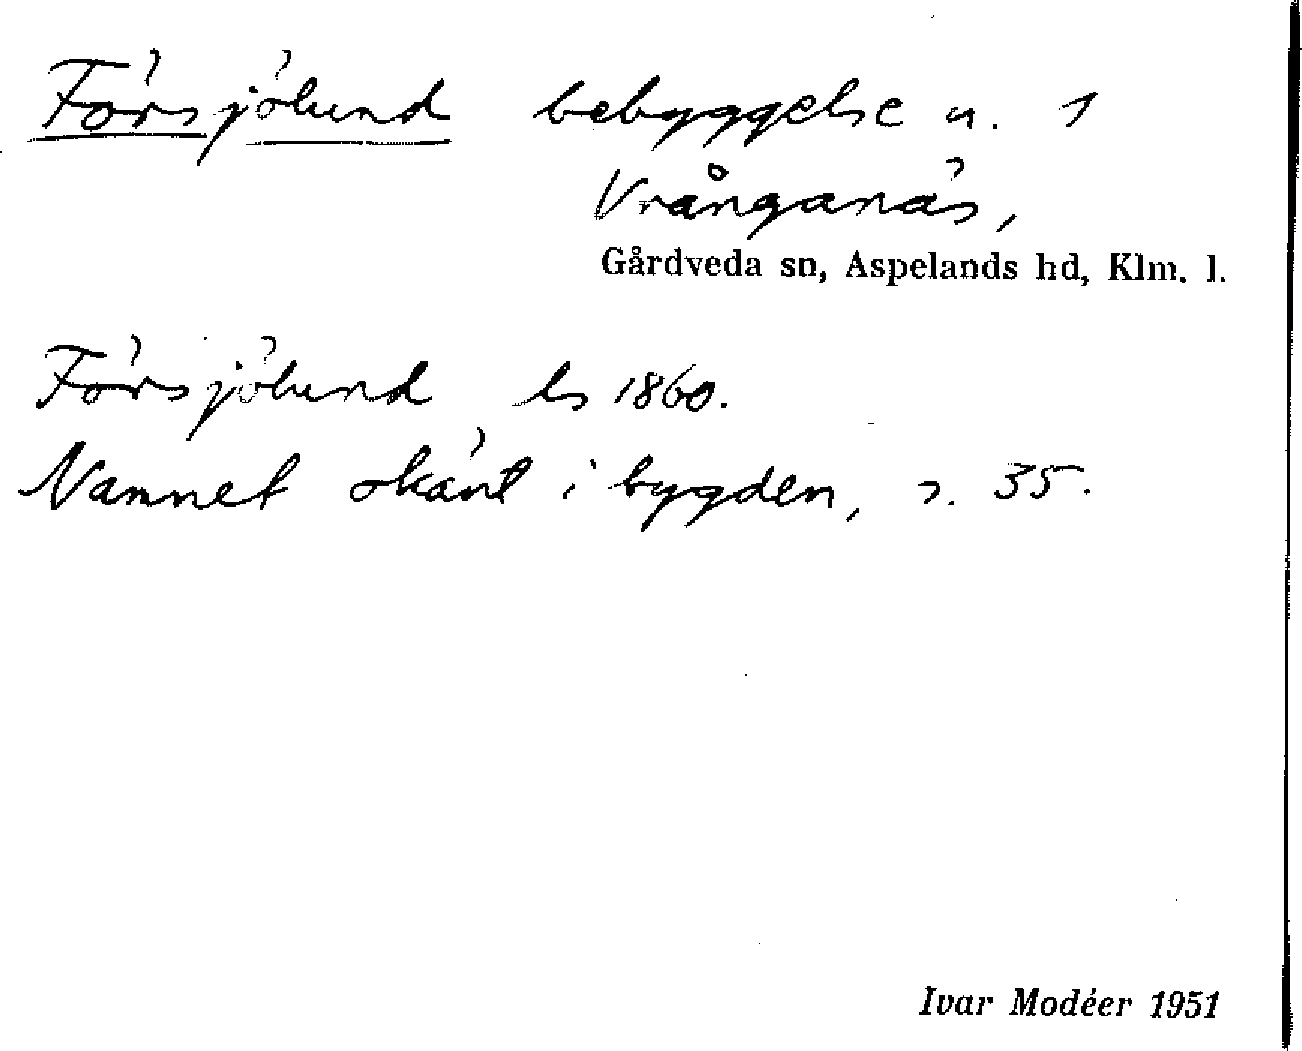 Försjölund bebyggelse u. 1
Vrånganäs,
Gårdveda sn, Aspelands hd, Klm. l.
Försjölund ls 1860.
Namnet okänt i bygden, s. 35.
Ivar Modéer 1951